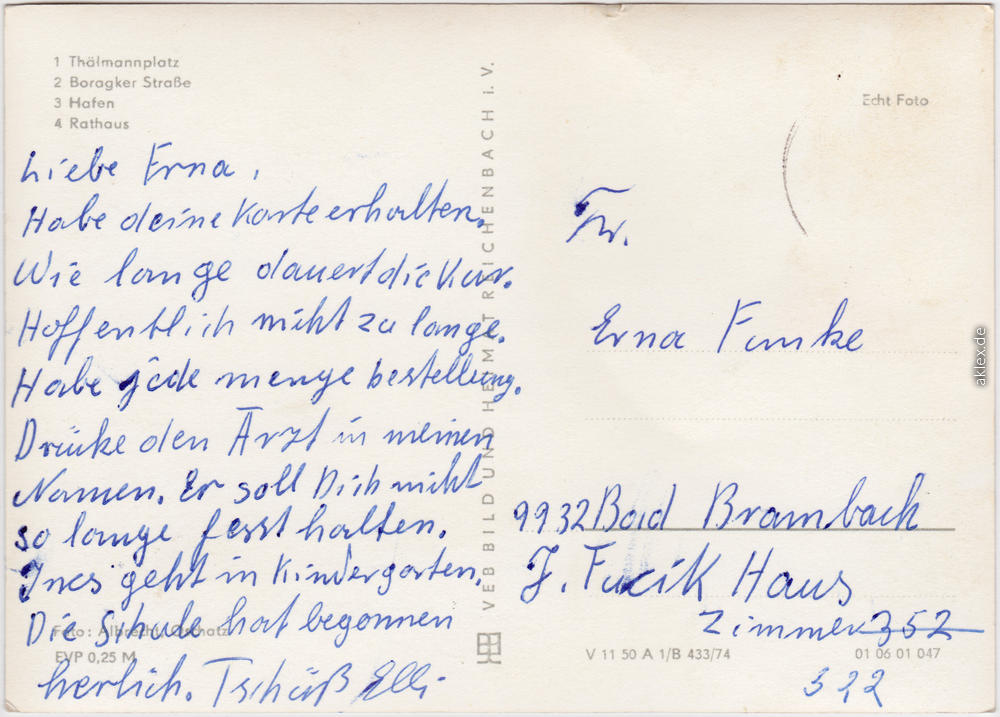 1 Thälmannplatz
2 Boragker Straße
3 Hafen
4 Rathaus
Liebe Erna,
Habe deine Karte erhalten.
Wie lange dauert die Kur.
Hoffentlich nicht zu lange.
Habe jede menge bestellung.
Drücke den Arzt in meinen
Namen. Er soll Dich nicht
so lange fesst halten.
Ines geht in Kindergarten.
Die Schule hat begonnen
Foto: Albrecht, Oschatz
EVP 0,25 M
herlich. Tschüß Elli
VEB BILD UND HEIMAT REICHENBACH i. V.
Echt Foto
Fr.
Erna Funke
9932 Bad Brambach
J. Fucik Haus
Zimmer 352
V 11 50 A 1/B 433/74
01 06 01 047
322
aklex.de